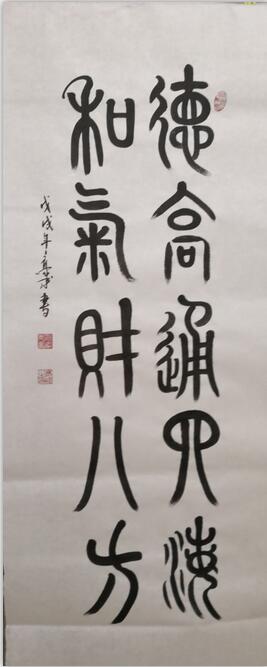 德高通四海
和氣財八方
戊戌年
書